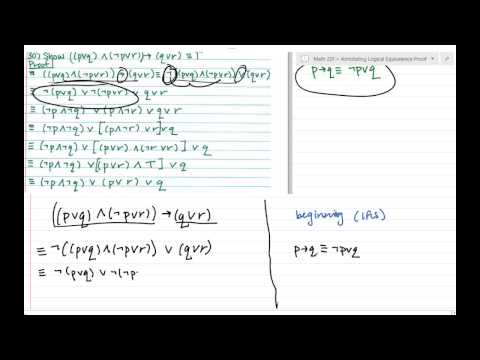 30) Show ((p∨q) ∧(¬p∨r)) → (q∨r) ≡ T
Proof:
≡ ((p∨q) ∧(¬p∨r)) → (q∨r) ≡ ¬((p∨q) ∧(¬p∨r)) ∨ (q∨r)
≡ ¬(p∨q) ∨ ¬(¬p∨r) ∨ q∨r
≡ (¬p∧¬q) ∨ (p∧¬r) ∨ q∨r
≡ (¬p∧¬q) ∨ [(p∧¬r) ∨r] ∨q
≡ (¬p∧¬q) ∨ [(p∨r) ∧(¬r∨r)] ∨ q
≡ (¬p∧¬q) ∨ [(p∨r) ∧ T] ∨ q
≡ (¬p∧¬q) ∨ (p∨r) ∨ q
Math 231 > Annotating Logical Equivalence Proof
p→q ≡ ¬p∨q
((p∨q) ∧(¬p∨r)) → (q∨r)
≡ ¬((p∨q) ∧(¬p∨r)) ∨ (q∨r)
≡ ¬(p∨q) ∨ ¬(¬p
beginning (LHS)
p→q ≡ ¬p∨q